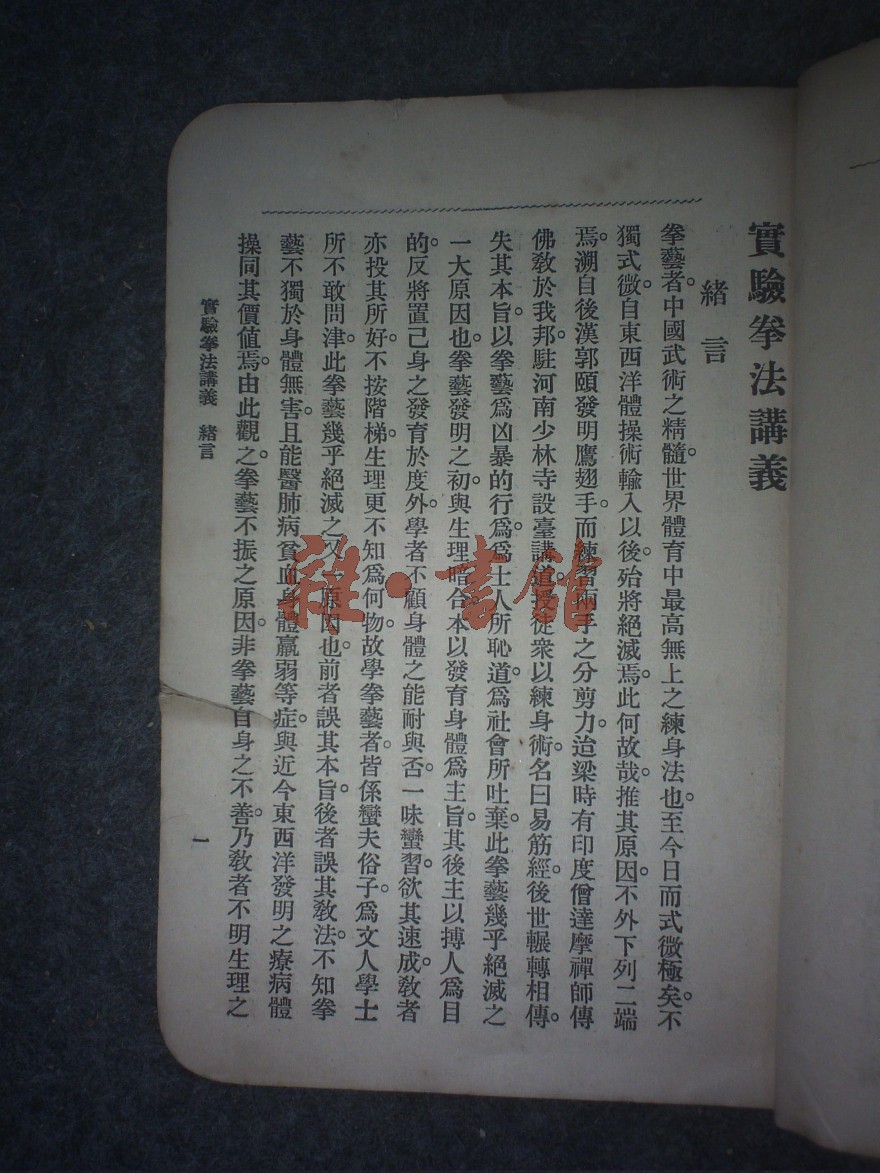 實驗拳法講義
緒言
拳藝者。中國武術之精髓。世界體育中最高無上之練身法也。至今日而式微極矣。不
獨式微。自東西洋體操術輸入以後。殆將絕滅焉。此何故哉。推其原因。不外下列二端
焉。溯自後漢郭頤發明鷹翅手。而練習兩手之分剪力。迨梁時有印度僧達摩禪師傳
佛敎於我邦。駐河南少林寺。設臺講道。授徒衆以練身術。名曰易筋經。後世輾轉相傳。
失其本旨。以拳藝爲凶暴的行。爲爲士人所恥道。爲社會所吐棄。此拳藝幾乎絕滅之
一大原因也。拳藝發明之初。與生理暗合。本以發育身體爲主旨。其後主以搏人爲目
的。反將置己身之發育於度外。學者不顧身體之能耐與否。一味蠻習。欲其速成。敎者
亦投其所好。不按階梯。生理更不知爲何物。故學拳藝者。皆係蠻夫俗子。爲文人學士
所不敢問津。此拳藝幾乎絕滅之又一原因也。前者誤其本旨。後者誤其敎法。不知拳
藝不獨於身體無害。且能醫肺病貧血身體羸弱等症。與近今東西洋發明之療病體
操同其價値焉。由此觀之。拳藝不振之原因。非拳藝自身之不善。乃敎者不明生理之
實驗拳法講義 緒言
一
雜·書館